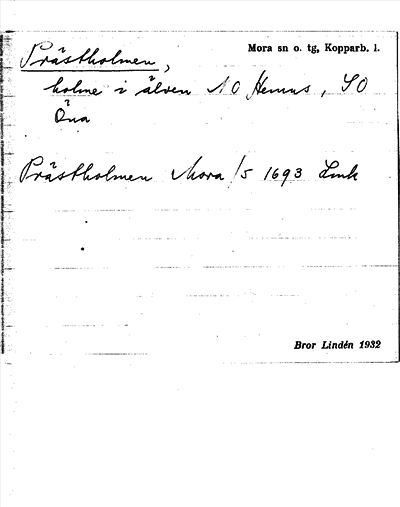 Prästholmen,
Mora sn o. tg, Kopparb. l.
holme i älven NO Hemus, SO
Öna
Prästholmen Mora /s 1693 Lmk
Bror Lindén 1932